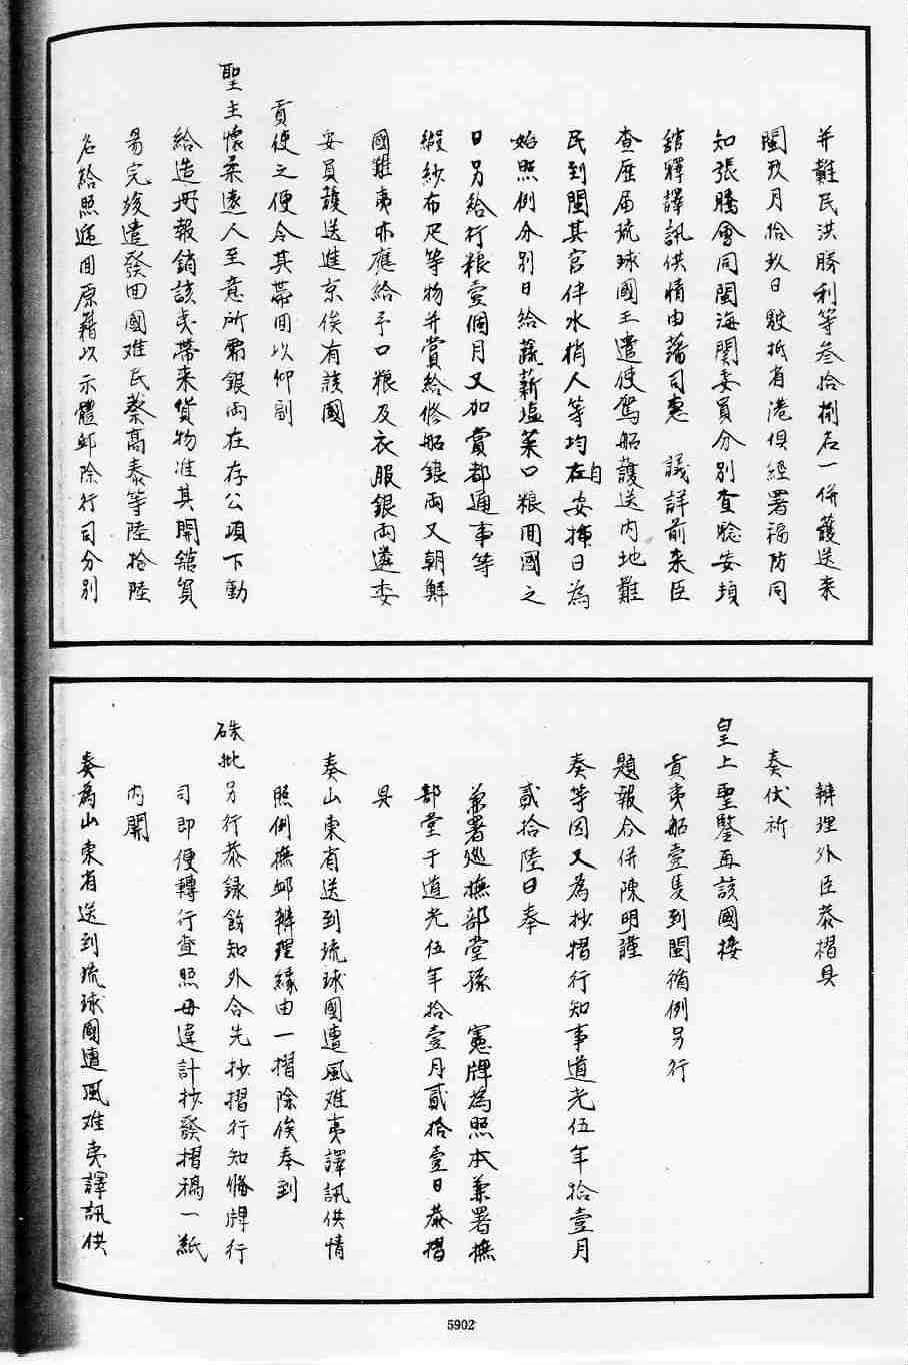 并難民洪勝利等叁拾捌名一併護送来
閩玖月拾玖日駛抵省港俱經署福防同
知張騰會同閩海関委員分別查驗安頓
舘驛譯訊供情由藩司惠　議詳前来臣
查歷屆琉球國王遣使駕船護送内地難
民到閩其官伴水梢人等均在自安揷日為
始照例分別日給蔬薪塩菜口粮囬國之
日另給行粮壹個月又加賞都通事等
緞紗布疋等物并賞給修船銀両又朝鮮
國難夷亦應給予口粮及衣服銀両遴委
妥員護送進京俟有該國
貢使之便令其帯囬以仰副
聖主懷柔遠人至意所需銀両在存公項下動
給造冊報銷該夷帯来貨物准其開舘貿
易完竣遣發囬國难民蔡高泰等陸拾陸
名給照逓囬原籍以示體邺除行司分别
辦理外臣恭摺具
奏伏祈
皇上聖鑒再該國接
貢夷船壹隻到閩循例另行
題報合併陳明謹
奏等因又為抄摺行知事道光伍年拾壹月
貳拾陸日奉
兼署巡撫部堂孫　憲牌為照本兼署撫
部堂于道光伍年拾壹月貳拾壹日恭摺
具
奏山東省送到琉球國遭風难夷譯訊供情
照例撫邺辦理縁由一摺除俟奉到
硃批另行恭録飭知外合先抄摺行知備牌行
司即便轉行查照毋違計抄發摺稿一紙
内開
奏為山東省送到琉球國遭風难夷譯訊供
5902